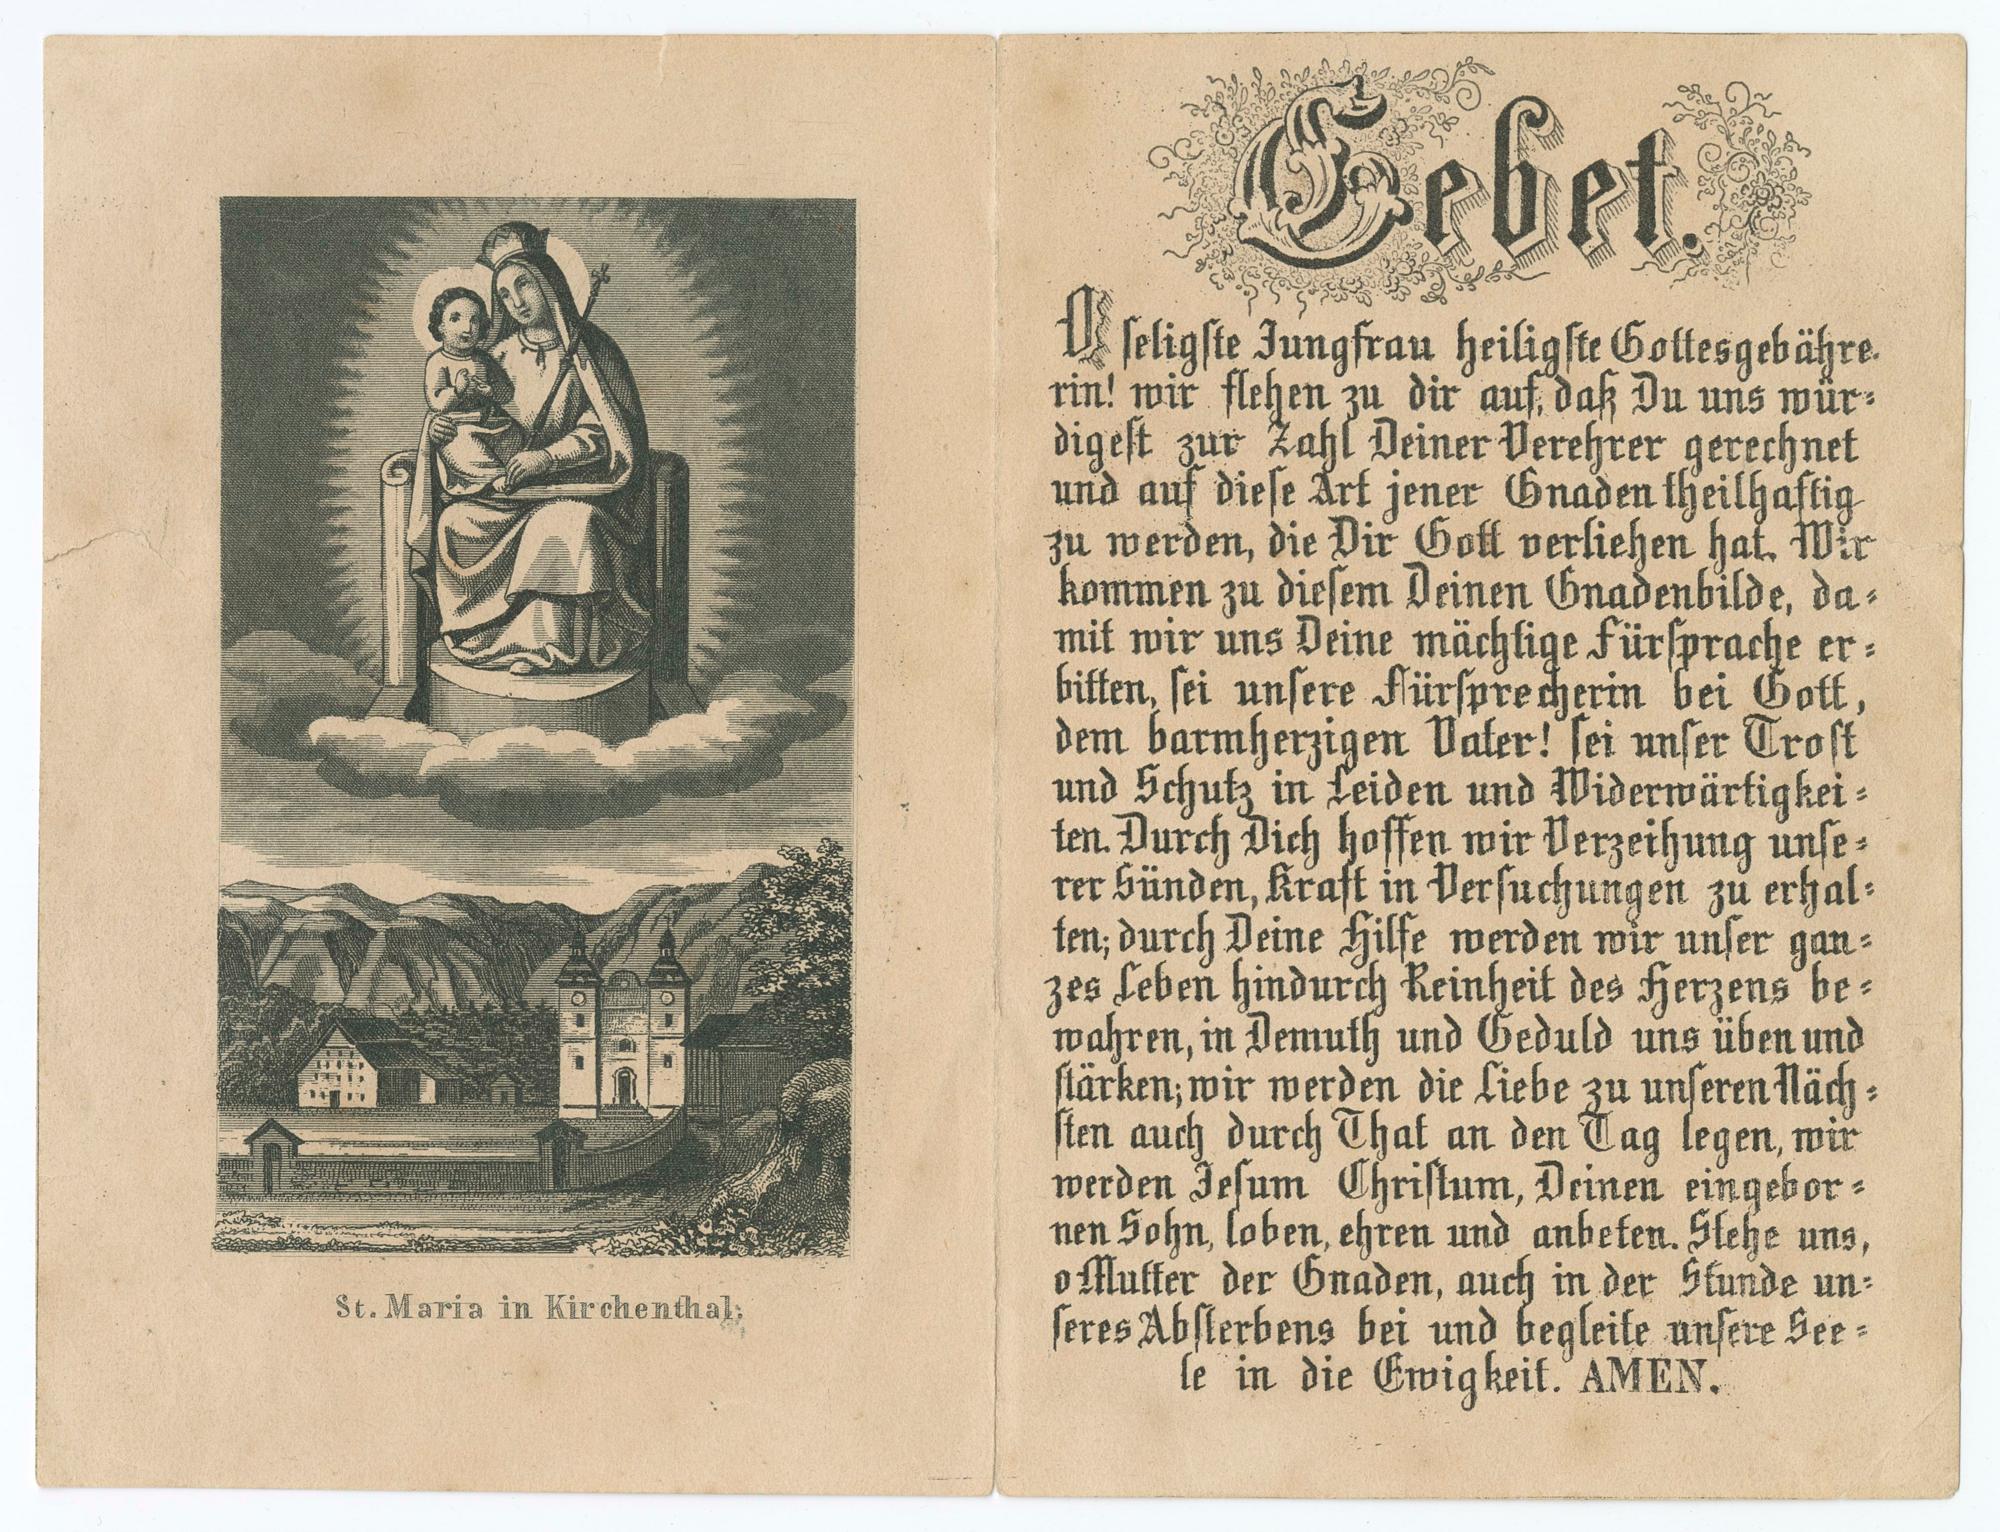 St. Maria in Kirchenthal.
Gebet.
O seligste Jungfrau heiligste Gottesgebähre-
rin! wir flehen zu dir auf, daß Du uns wür-
digest zur Zahl Deiner Verehrer gerechnet
und auf diese Art jener Gnaden theilhaftig
zu werden, die Dir Gott verliehen hat. Wir
kommen zu diesem Deinen Gnadenbilde, da-
mit wir uns Deine mächtige Fürsprache er-
bitten, sei unsere Fürsprecherin bei Gott,
dem barmherzigen Vater! sei unser Trost
und Schutz in Leiden und Widerwärtigkei-
ten. Durch Dich hoffen wir Verzeihung unse-
rer Sünden, Kraft in Versuchungen zu erhal-
ten; durch Deine Hilfe werden wir unser gan-
zes Leben hindurch Reinheit des Herzens be-
wahren, in Demuth und Geduld uns üben und
stärken; wir werden die Liebe zu unseren Näch-
sten auch durch That an den Tag legen, wir
werden Jesum Christum, Deinen eingebor-
nen Sohn, loben, ehren und anbeten. Stehe uns,
o Mutter der Gnaden, auch in der Stunde un-
seres Absterbens bei und begleite unsere See-
le in die Ewigkeit. AMEN.